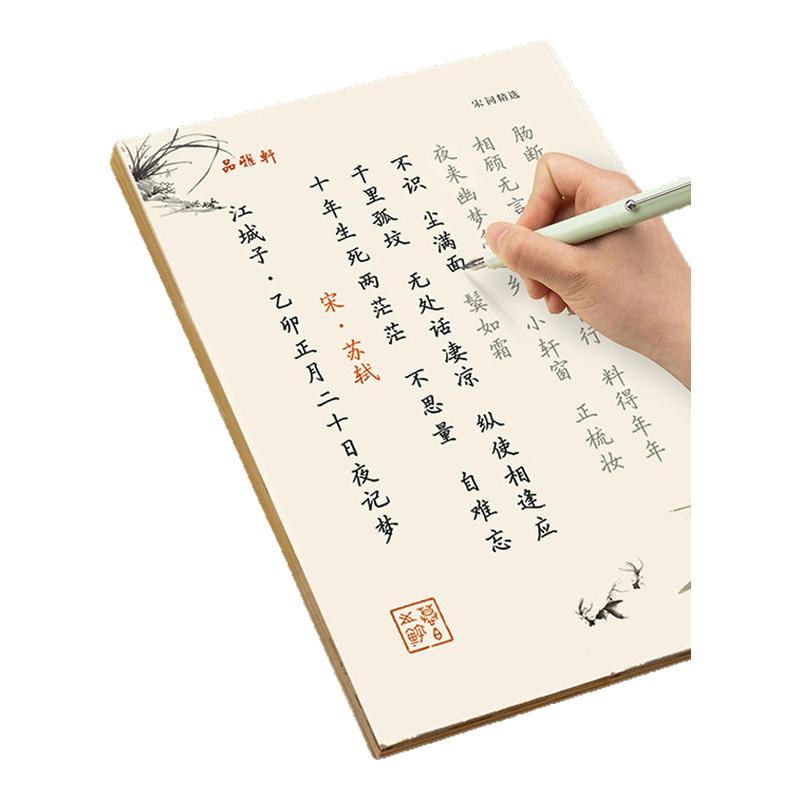 宋词精选
品雅轩
江城子·乙卯正月二十日夜记梦
宋·苏轼
十年生死两茫茫 不思量 自难忘
千里孤坟 无处话凄凉 纵使相逢应
不识 尘满面 鬓如霜
夜来幽梦 乡 小轩窗 正梳妆
相顾无言 行 料得年年
肠断